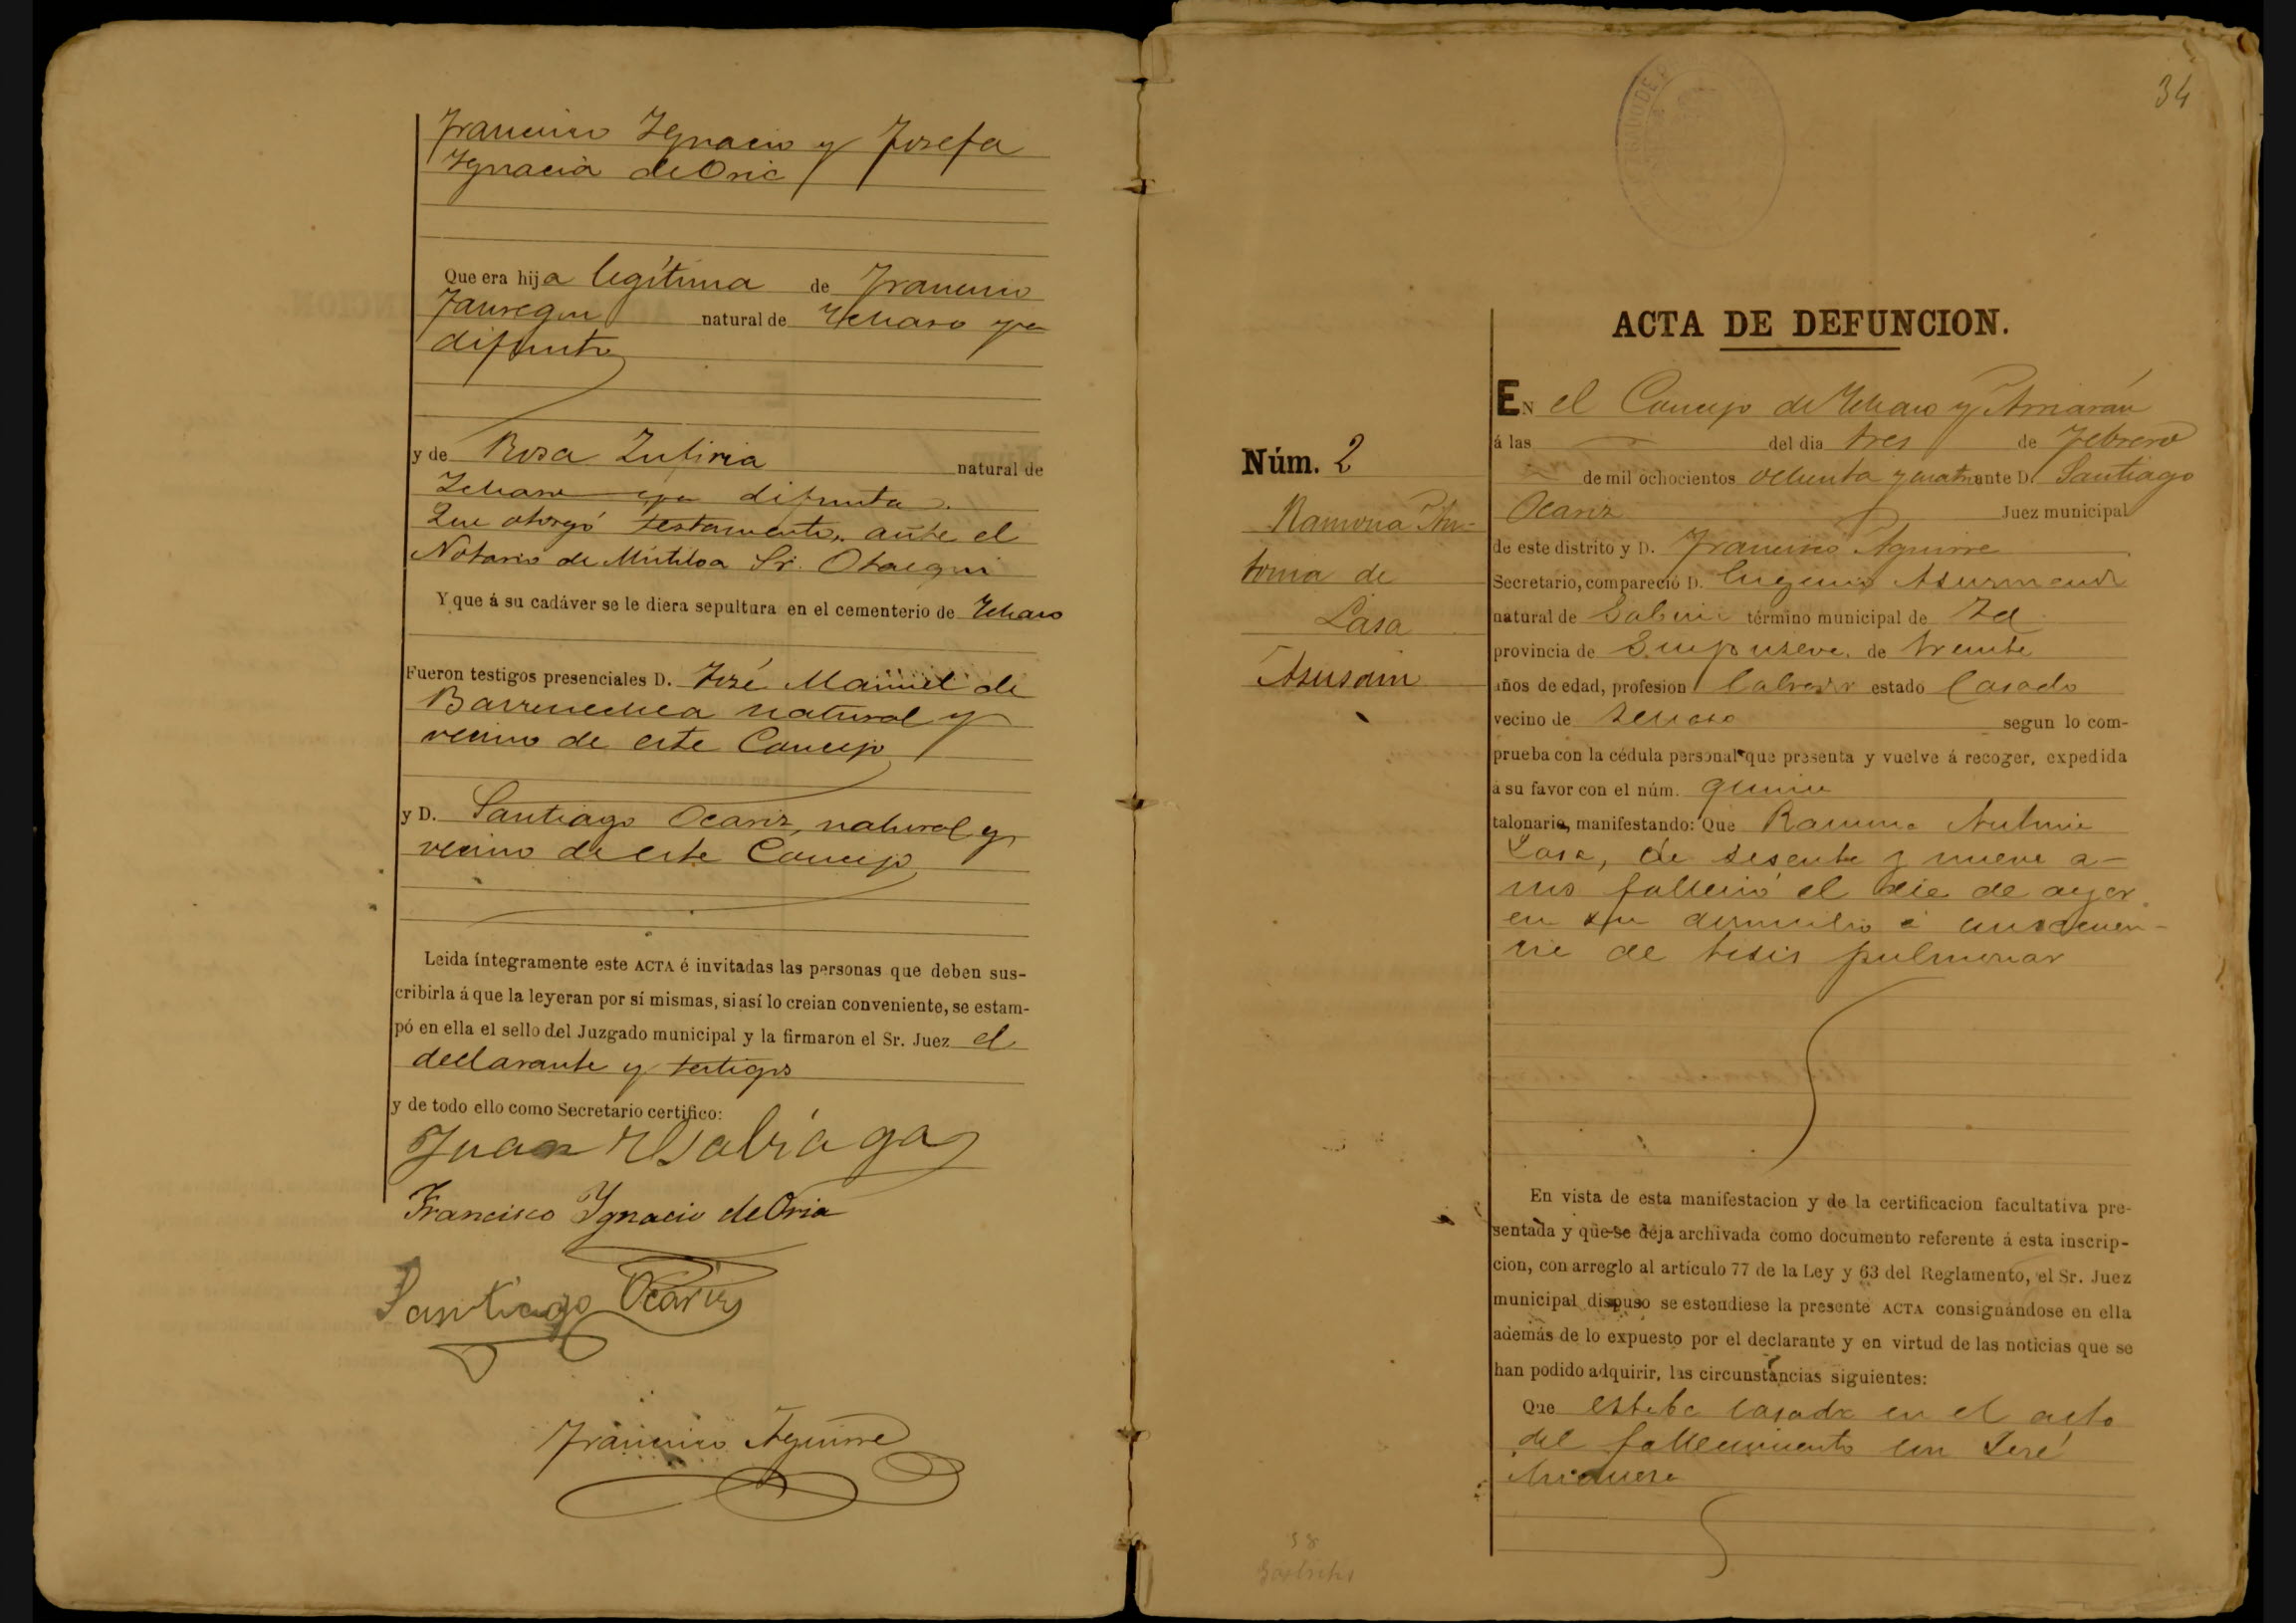 Francisco Ygnacio y Josefa
Ygnacia de Oria
Que era hija legítima de Francisco
Jauregui natural de Ychaso ya
difunto
y de Rosa Zufiria natural de
Ychaso ya difunta.
Que otorgó testamento, ante el
Notario de Mutiloa Sr. Otaegui
Y que á su cadáver se le diera sepultura en el cementerio de Ychaso
Fueron testigos presenciales D. José Manuel de
Barrenechea natural y
vecino de este Concejo
y D. Santiago Ocariz, natural y
vecino de este Concejo
Leida íntegramente este ACTA é invitadas las personas que deben sus-
cribirla á que la leyeran por sí mismas, si así lo creian conveniente, se estam-
pó en ella el sello del Juzgado municipal y la firmaron el Sr. Juez el
declarante y testigos
y de todo ello como Secretario certifico:
Juan Usabiaga
Francisco Ygnacio de Oria
Santiago Ocariz
Francisco Aguirre
34
ACTA DE DEFUNCION.
EN el Concejo de Ychaso y Arriarán
á las del dia tres de Febrero
de mil ochocientos ochenta y cuatro ante D. Santiago
Ocariz Juez municipal
de este distrito y D. Francisco Aguirre
Secretario, compareció D. Eugenio Asurmendi
natural de término municipal de Id
provincia de Guipuzcoa, de treinta
años de edad, profesion labrador estado casado
vecino de Ychaso segun lo com-
prueba con la cédula personal que presenta y vuelve á recoger, expedida
á su favor con el núm. quince
talonario, manifestando: Que Ramona Antonia
Lasa, de sesenta y nueve a-
ños falleció el dia de ayer
en su domicilio á consecuen-
cia de tisis pulmonar
Núm. 2
Ramona An-
tonia de
Lasa
En vista de esta manifestacion y de la certificacion facultativa pre-
sentada y que se deja archivada como documento referente á esta inscrip-
cion, con arreglo al artículo 77 de la Ley y 63 del Reglamento, el Sr. Juez
municipal dispuso se estendiese la presente ACTA consignándose en ella
además de lo expuesto por el declarante y en virtud de las noticias que se
han podido adquirir, las circunstancias siguientes:
Que estaba casada en el acto
del fallecimiento con José